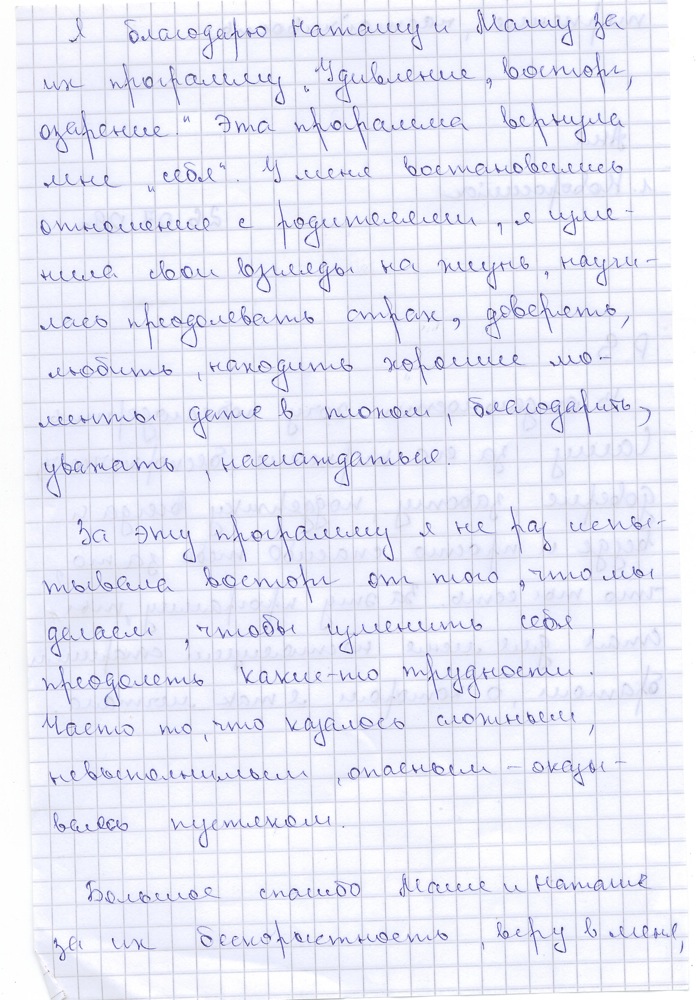 Я благодарю Наташу и Машу за
их программу „Удивление, восторг,
озарение." Эта программа вернула
мне „себя". У меня востановились
отношение с родителями, я изме-
нила свои взгляды на жизнь, научи-
лась преодолевать страх, доверять,
любить, находить хорошие мо-
менты даже в плохом, благодарить,
уважать, наслаждаться.
За эту программу я не раз испы-
тывала восторг от того, что мы
делаем, чтобы изменить себя,
преодолеть какие-то трудности.
Часто то, что казалось сложным,
невыполнимым, опасным – оказы-
валось пустяком.
Большое спасибо Маше и Наташе
за их бескорыстность, веру в меня,